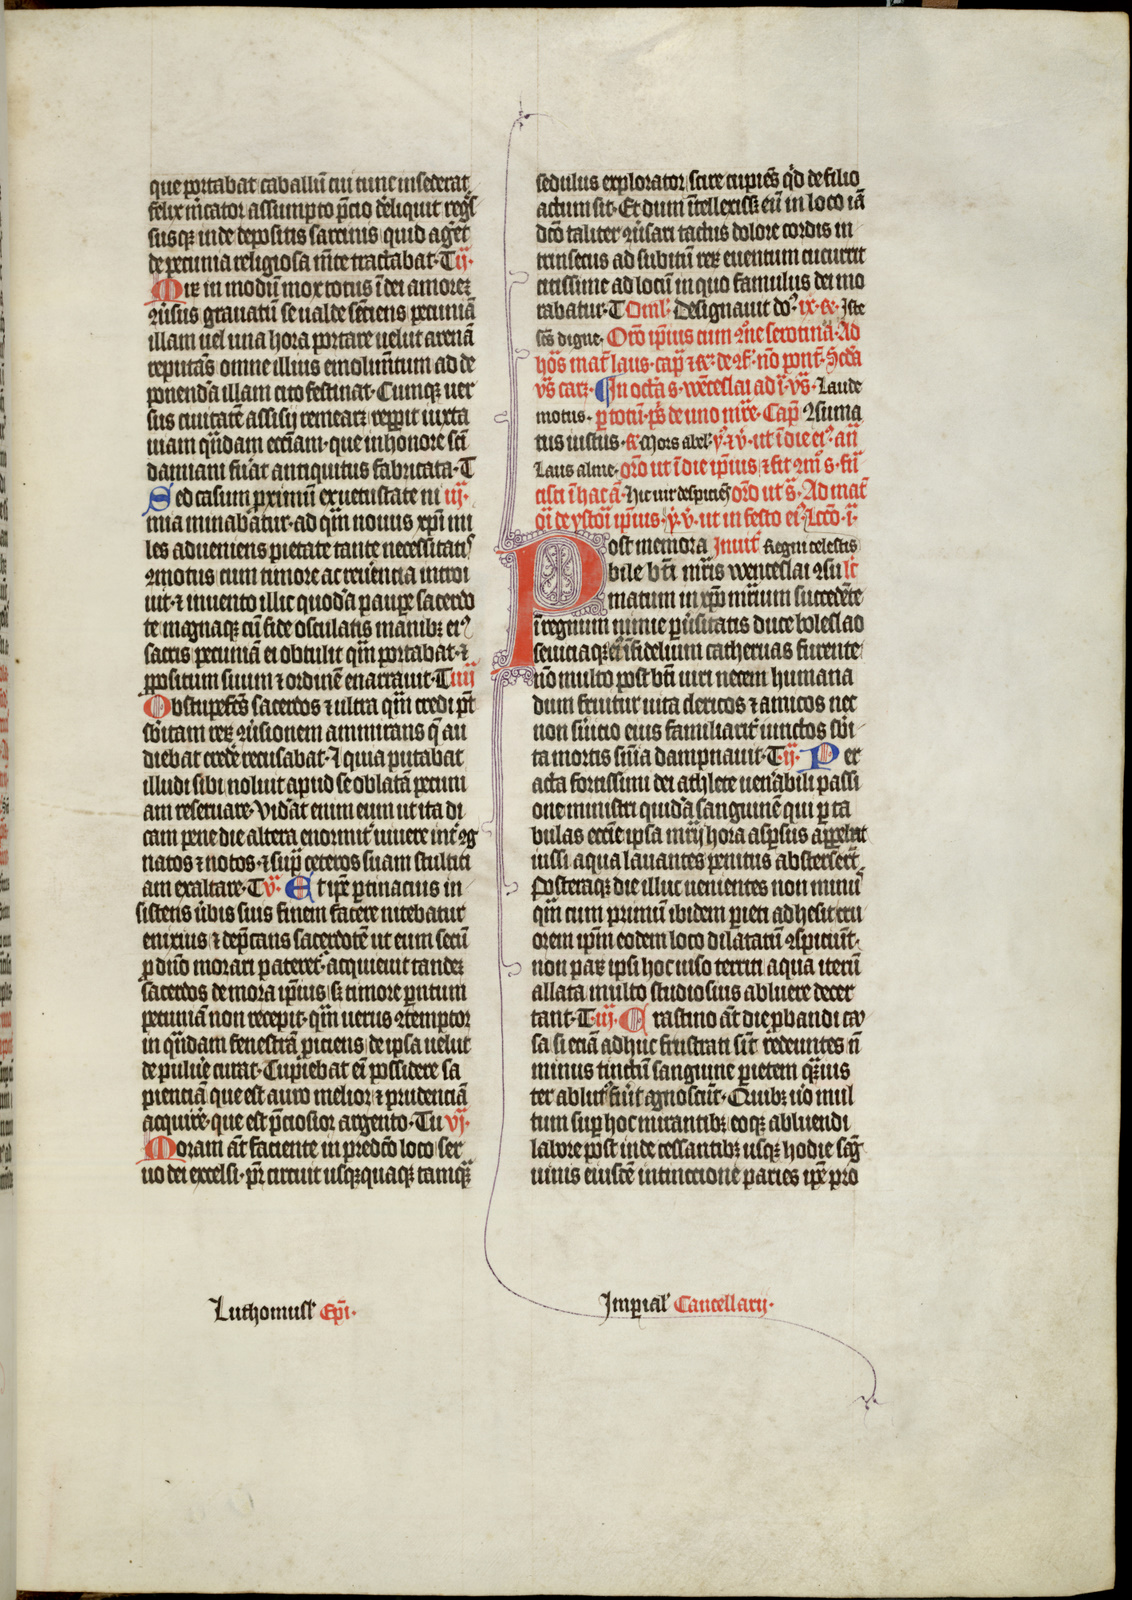 que portabat caballū cui tunc insederat
felix m̄cator assumpto p̄cio dereliquit reg̃s
susqꝫ inde depositis sarcinis quid ageret
de pecunia religiosa mēte tractabat· T ij·
Mirꝫ in modū mox totus ī dei amorez
ꝯūsus gravatū se valde sēciens pecuniā
illam uel una hora portare uelut arenā
reputās omne illius emolumētum ad de
ponendā illam cito festinat· Cumqꝫ uer
sus ciuitatē assisij remearꝫ repperit iuxta
uiam quādam ecc̄iam· que in honore sc̄i
damiani fuāt antiquitus fabricata· T
Sed casum proximū ex uetustate ni iij·
mia minabatur· ad quā nouus xp̄i mi
les adueniens pietate tante necessitatis
ꝯmotus cum timore ac reuerencia introi
uit· ⁊ inuento illic quodā paupe sacerdo
te magnaqꝫ cū fide osculatis manibꝫ eiꝰ
sacris pecuniā ei obtulit quā portabat· ⁊
ꝓpositum suum ⁊ ordinē enarrauit· T iiij
Obstupefc̄s sacerdos ⁊ ultra quā credi pōt
subitam rerꝫ ꝯūsionem ammirans q̄ au
diebat credere recusabat· Et quia putabat
illudi sibi noluit apud se oblatā pecuni
am reseruare· Viderat enim eum ut ita di
cam pene die altera enormit̄ uiuere int̄ ꝯg
natos ⁊ notos· ⁊ suꝑ ceteros suam stultici
am exaltare· T v· At ip̄e ꝑtinacius in
sistens ūbis suis finem facere nitebatur
enixius ⁊ dep̄cans sacerdotē ut eum secū
ꝓ dn̄o morari pateret̄· acquieuit tandez
sacerdos de mora ip̄ius· sꝫ timore parentum
pecuniā non recepit· quā uerus ꝯtemptor
in quādam fenestrā ꝓiciens de ipsa uelut
de puluere curat· Cupiebat eī possidere sa
pienciā que est auro melior ⁊ prudenciā
acquirē· que est p̄ciosior argento· Tu vj·
Moram aūt faciente in predc̄o loco ser
uo dei excelsi· pr̄ circuit usqꝫquaqꝫ tamqꝫ
Luthomusl̄ Ep̄i·
sedulus explorator scire cupiēs qd̄ de filio
actum sit· Et dum ītellexissꝫ eū in loco iā
dc̄o taliter ꝯūsari tactus dolore cordis in
trinsecus ad subitū rerꝫ euentum cucurrit
citissime ad locū in quo famulus dei mo
rabatur· T Oml̄· Designauit do· ix· R̄· Iste
sc̄s digne· Oro ip̄ius cum ꝯme serotina· Ad
hōs mat̄ laus· cap̄ ⁊ R̄· de ꝯf̄· nō pont̄· Scd̄a
vs̄ carꝫ· In octa s· wēceslai ad j· vs̄· Laude
motus· ꝑ totū· ps̄ de uno mr̄e· Cap̄ ꝯsuma
tus iustus· R̄· Mors abel· ꝟ· ⁊ ꝟ· ut ī die eiꝰ· añ
Laus alme· oro ut ī die ip̄ius ⁊ fit ꝯm̄ s· frā
cisci ī hac· a· Hic uir despiciēs oro ut s̄· Ad mat̄
oī de ystoī ip̄ius· ꝟ· ꝟ· ut in festo eiꝰ· Lccō· j·
Post memora Inuit̄ Regni celestis
bile btī mr̄is wenceslai ꝯsu lc̄
matum in xp̄o mr̄ium succedēte
ī regnum nimie ꝑūsitatis duce boleslao
seuiciaqꝫ eiꝰ īfidelium cateruas furente
nō multo post btī uiri necem humana
dum fruitur uita clericos ⁊ amicos nec
non s̄uicio eius familiarit̄ iunctos subi
ta mortis snīa dampnauit· T ij· Per
acta fortissimi dei athlete uenerabili passi
one ministri quidā sanguinē qui ꝑ ta
bulas ecc̄ie ipsa mr̄ij hora asꝑsus apparebat
iussi aqua lauantes penitus abstersert̄
Posteraqꝫ die illuc uenientes non minꝰ
quā cum primū ibidem parieti adhesit cru
orem ip̄m eodem loco dilatatū ꝯspiciūt·
non parꝫ ipsi hoc uiso territi aqua iterū
allata multo studiosius abluere decer
tant· T iij· Crastino aūt die ꝓbandi ca
sa si eciā adhuc frustrati sūt redeuntes nō
minus tinctū sanguine parietem quā ius
ter ablutꝰ fūit agnoscūt· Quibꝫ uō mul
tum suꝑ hoc mirantibꝫ eoqꝫ abluendi
labore post inde cessantibꝫ usqꝫ hodie sag
uinis eiusdē intinccione paries ip̄e pro
Imꝑial̄ Cancellarij·